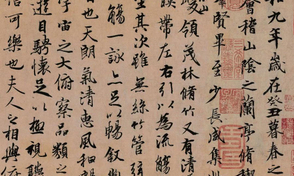 和九年歲在癸丑暮春之
會稽山陰之蘭亭脩稧
賢畢至少長咸集
峻領茂林脩竹又有清
映帶左右引以為流觴
坐其次雖無絲竹管弦
一觴一詠亦足以暢敘
日也天朗氣清惠風和暢
宇宙之大俯察品類之
遊目騁懷足以極視聽
信可樂也夫人之相與俯